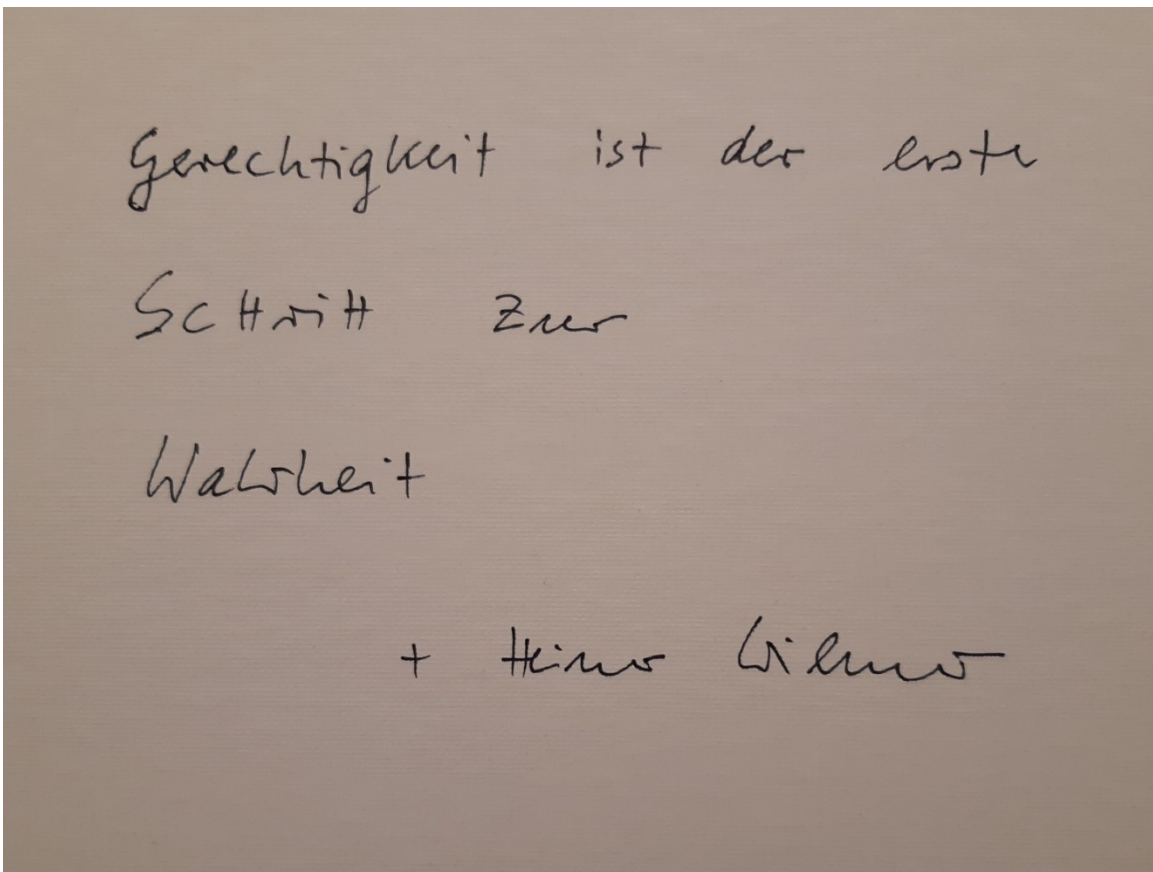 Gerechtigkeit ist der erste
Schritt zur
Wahrheit
+ Heiner Wilmer